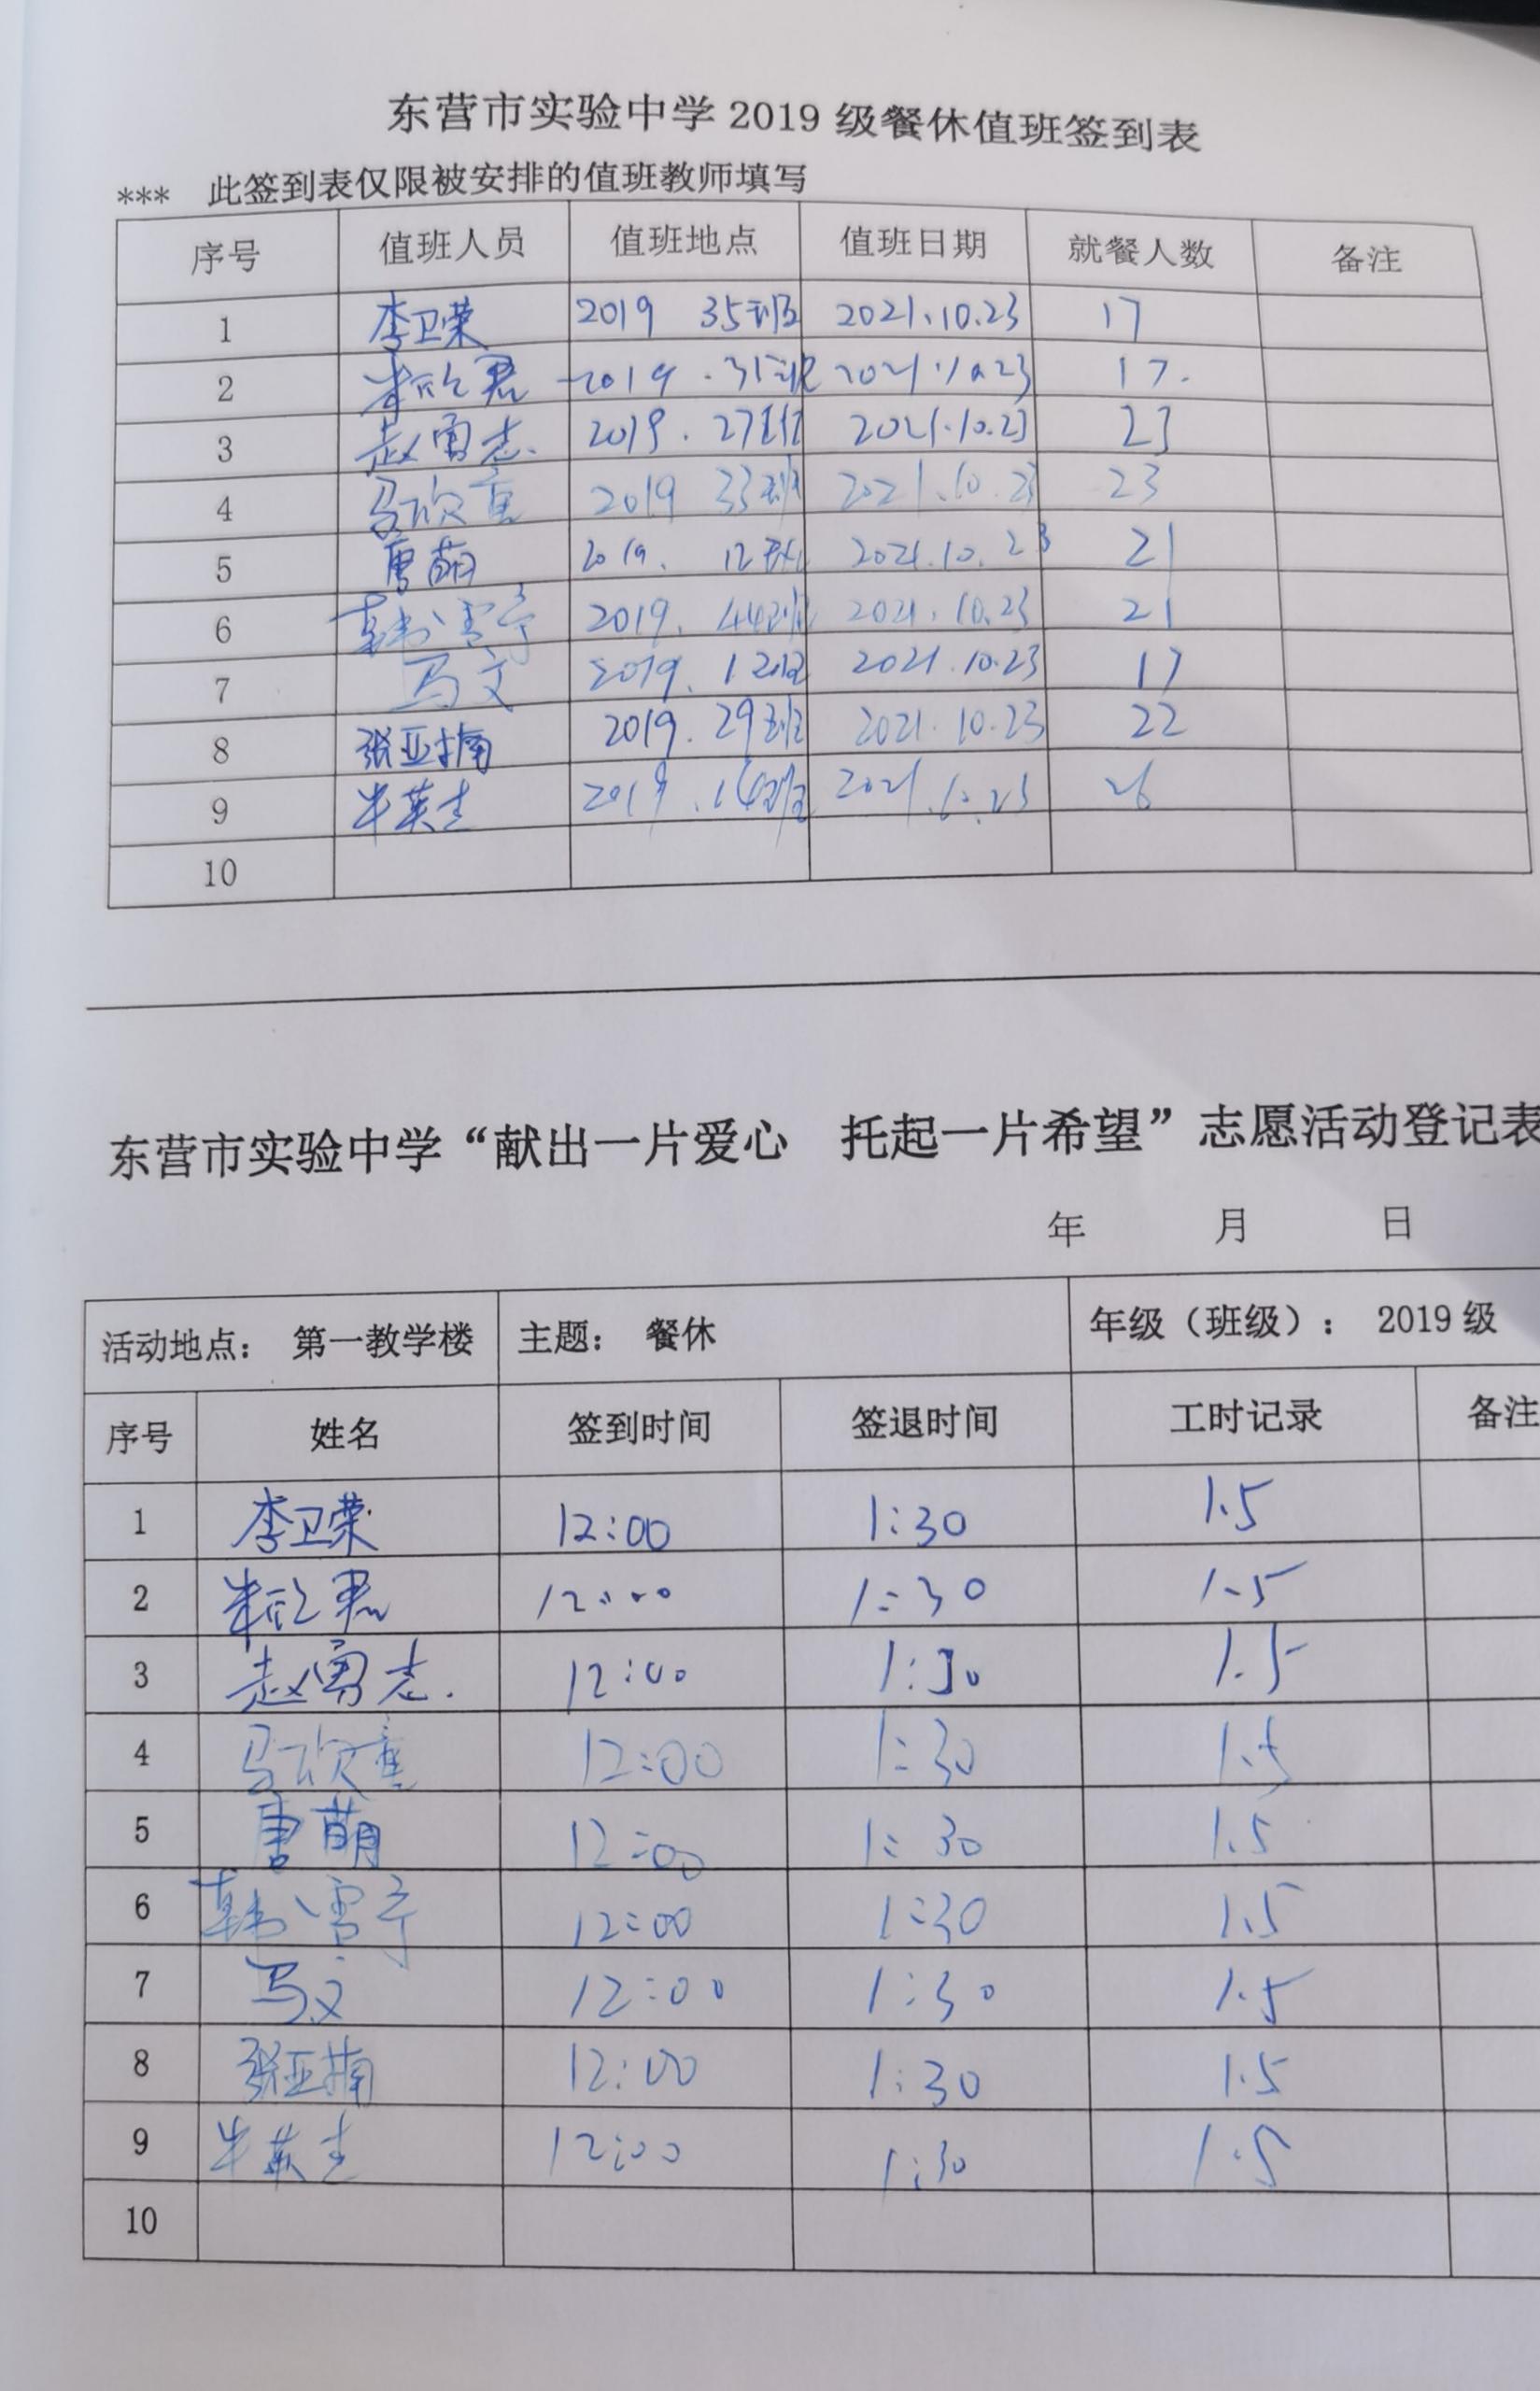 东营市实验中学 2019 级餐休值班签到表
*** 此签到表仅限被安排的值班教师填写
序号 值班人员 值班地点 值班日期 就餐人数 备注
1 李卫荣 2019 35班 2021.10.23 17
2 2019.31班 2021.10.23 17.
3 赵勇志. 2019.27班 2021.10.23 23
4 马欣童 2019 33班 2021.10.23 23
5 唐萌 2019. 12班 2021.10.23 21
6 韩雪宁 2019. 44班 2021.10.23 21
7 马文 2019. 12班 2021.10.23 17
8 张亚楠 2019. 29班 2021.10.23 22
9 牛英杰 2019.14班 2021.10.23 26
10
东营市实验中学“献出一片爱心 托起一片希望”志愿活动登记表
年 月 日
活动地点: 第一教学楼 主题: 餐休 年级（班级）: 2019 级
序号 姓名 签到时间 签退时间 工时记录 备注
1 李卫荣 12:00 1:30 1.5
2 12:00 1:30 1.5
3 赵勇志. 12:00 1:30 1.5
4 马欣童 12:00 1:30 1.5
5 唐萌 12:00 1:30 1.5
6 韩雪宁 12:00 1:30 1.5
7 马文 12:00 1:30 1.5
8 张亚楠 12:00 1:30 1.5
9 牛英杰 12:00 1:30 1.5
10